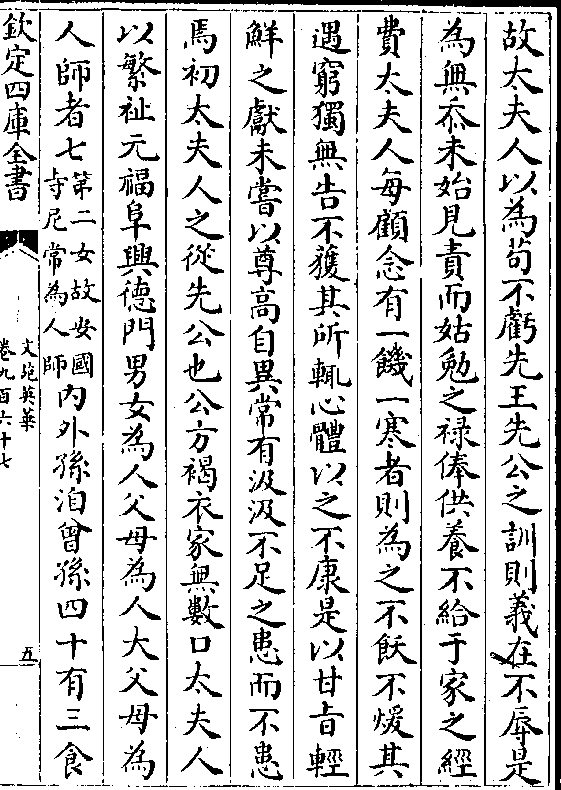 故太夫人以為苟不虧先王先公之訓則義在不辱是
為無忝未始見責而姑勉之祿俸供養不給于家之經
費太夫人每顧念有一饑一寒者則為之不飫不煖其
遇窮獨無告不獲其所輒心體以之不康是以甘旨輕
鮮之獻未嘗以尊高自異常有汲汲不足之患而不患
焉初太夫人之從先公也公方褐衣家無數口太夫人
以繁祉元福阜興德門男女為人父母為人大父母為
人師者七第二女故安國寺尼常為人師內外孫洎曾孫四十有三食
欽定四庫全書
文苑英華
卷九百六十七
五